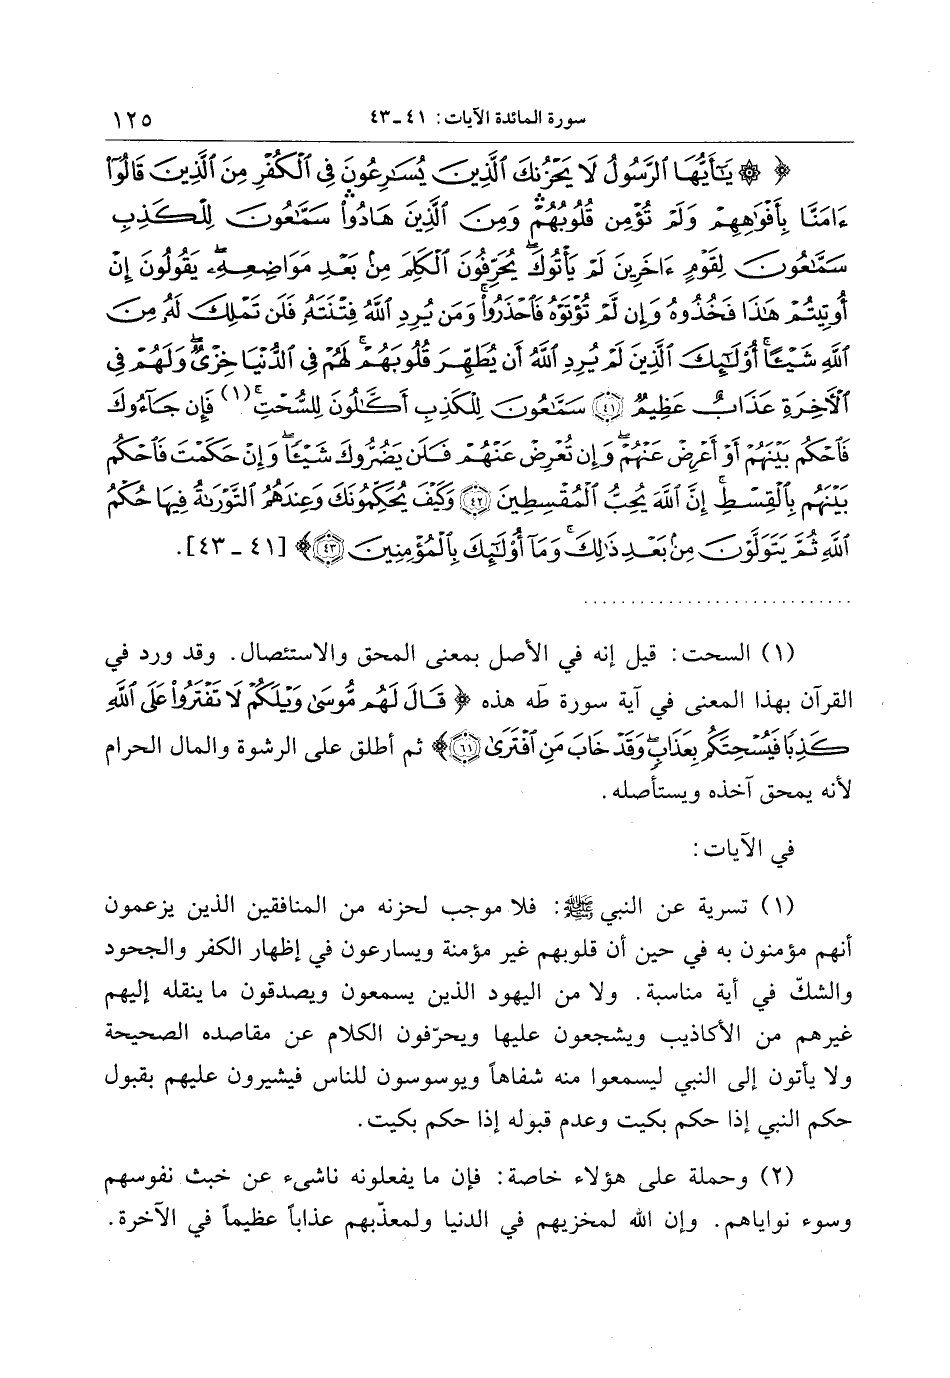 سورة المائدة الآيات: ٤١ ـ ٤٣ ١٢٥
﴿ ۞ يَٰٓأَيُّهَا ٱلرَّسُولُ لَا يَحۡزُنكَ ٱلَّذِينَ يُسَٰرِعُونَ فِي ٱلۡكُفۡرِ مِنَ ٱلَّذِينَ قَالُوٓاْ
ءَامَنَّا بِأَفۡوَٰهِهِمۡ وَلَمۡ تُؤۡمِن قُلُوبُهُمۡۛ وَمِنَ ٱلَّذِينَ هَادُواْۛ سَمَّٰعُونَ لِلۡكَذِبِ
سَمَّٰعُونَ لِقَوۡمٍ ءَاخَرِينَ لَمۡ يَأۡتُوكَۖ يُحَرِّفُونَ ٱلۡكَلِمَ مِنۢ بَعۡدِ مَوَاضِعِهِۦۖ يَقُولُونَ إِنۡ
أُوتِيتُمۡ هَٰذَا فَخُذُوهُ وَإِن لَّمۡ تُؤۡتَوۡهُ فَٱحۡذَرُواْۚ وَمَن يُرِدِ ٱللَّهُ فِتۡنَتَهُۥ فَلَن تَمۡلِكَ لَهُۥ مِنَ
ٱللَّهِ شَيۡـًٔاۚ أُوْلَٰٓئِكَ ٱلَّذِينَ لَمۡ يُرِدِ ٱللَّهُ أَن يُطَهِّرَ قُلُوبَهُمۡۚ لَهُمۡ فِي ٱلدُّنۡيَا خِزۡيٞۖ وَلَهُمۡ فِي
ٱلۡأٓخِرَةِ عَذَابٌ عَظِيمٞ ٤١ سَمَّٰعُونَ لِلۡكَذِبِ أَكَّٰلُونَ لِلسُّحۡتِۚ (١) فَإِن جَآءُوكَ
فَٱحۡكُم بَيۡنَهُمۡ أَوۡ أَعۡرِضۡ عَنۡهُمۡۖ وَإِن تُعۡرِضۡ عَنۡهُمۡ فَلَن يَضُرُّوكَ شَيۡـٔٗاۖ وَإِنۡ حَكَمۡتَ فَٱحۡكُم
بَيۡنَهُم بِٱلۡقِسۡطِۚ إِنَّ ٱللَّهَ يُحِبُّ ٱلۡمُقۡسِطِينَ ٤٢ وَكَيۡفَ يُحَكِّمُونَكَ وَعِندَهُمُ ٱلتَّوۡرَىٰةُ فِيهَا حُكۡمُ
ٱللَّهِ ثُمَّ يَتَوَلَّوۡنَ مِنۢ بَعۡدِ ذَٰلِكَۚ وَمَآ أُوْلَٰٓئِكَ بِٱلۡمُؤۡمِنِينَ ٤٣﴾ [٤١ ـ ٤٣].
(١) السحت: قيل إنه في الأصل بمعنى المحق والاستئصال. وقد ورد في
القرآن بهذا المعنى في آية سورة طه هذه ﴿ قَالَ لَهُم مُّوسَىٰ وَيۡلَكُمۡ لَا تَفۡتَرُواْ عَلَى ٱللَّهِ
كَذِبٗا فَيُسۡحِتَكُم بِعَذَابٖۖ وَقَدۡ خَابَ مَنِ ٱفۡتَرَىٰ ٦١﴾ ثم أطلق على الرشوة والمال الحرام
لأنه يمحق آخذه ويستأصله.
في الآيات:
(١) تسرية عن النبي ﷺ: فلا موجب لحزنه من المنافقين الذين يزعمون
أنهم مؤمنون به في حين أن قلوبهم غير مؤمنة ويسارعون في إظهار الكفر والجحود
والشكّ في أية مناسبة. ولا من اليهود الذين يسمعون ويصدقون ما ينقله إليهم
غيرهم من الأكاذيب ويشجعون عليها ويحرّفون الكلام عن مقاصده الصحيحة
ولا يأتون إلى النبي ليسمعوا منه شفاهاً ويوسوسون للناس فيشيرون عليهم بقبول
حكم النبي إذا حكم بكيت وعدم قبوله إذا حكم بكيت.
(٢) وحملة على هؤلاء خاصة: فإن ما يفعلونه ناشىء عن خبث نفوسهم
وسوء نواياهم. وإن الله لمخزيهم في الدنيا ولمعذّبهم عذاباً عظيماً في الآخرة.